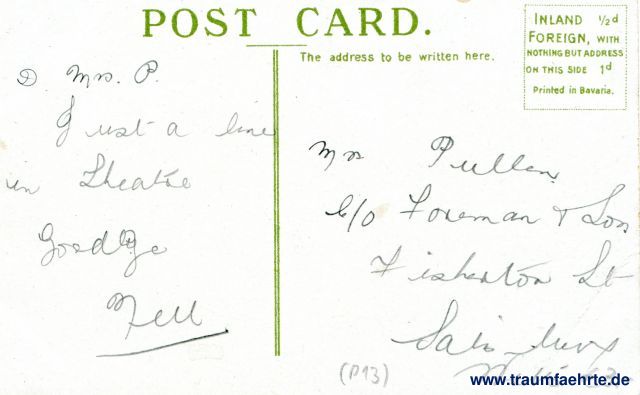 POST CARD.
INLAND ½d
FOREIGN, WITH
NOTHING BUT ADDRESS
ON THIS SIDE 1d
Printed in Bavaria.
The address to be written here.
D Mrs. P.
Just a line
in Theatre
Goodbye
Nell
Mrs Pullen
C/o Foreman & Son
Fisherton St
Salisbury
(P13)
www.traumfaehrte.de